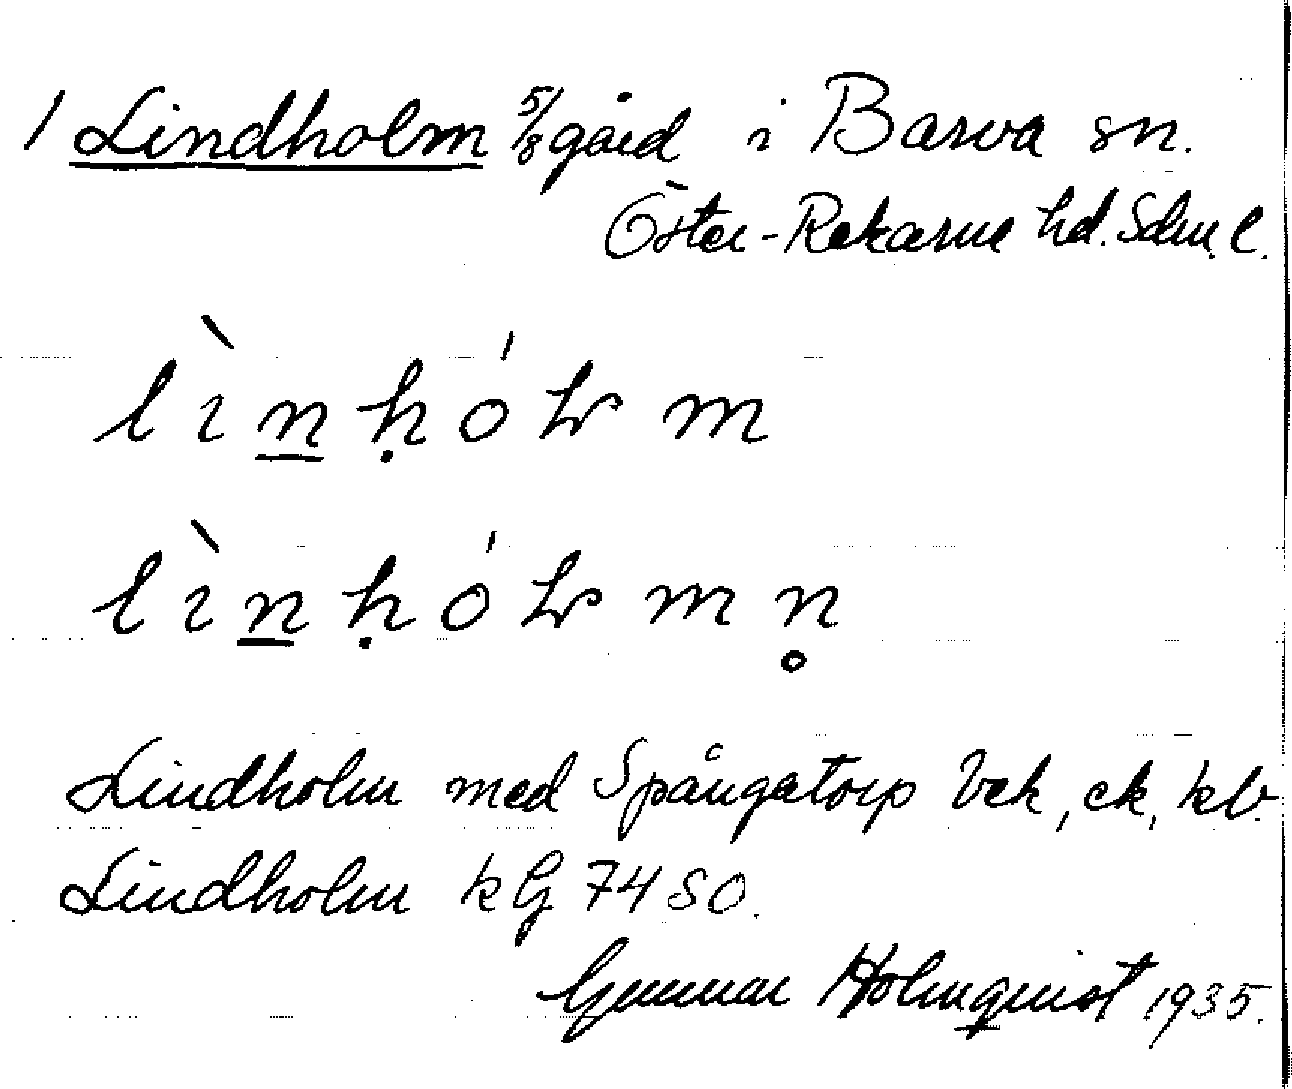 1 Lindholm 5/8 gård i Barva sn.
Öster-Rekarne hd. Sdm. l.
lìn̲ḥólm
lìn̲ḥólmn̥
Lindholm med Spångatorp Vek, ek, kb.
Lindholm kG 74 SO.
Gunnar Holmquist 1935.